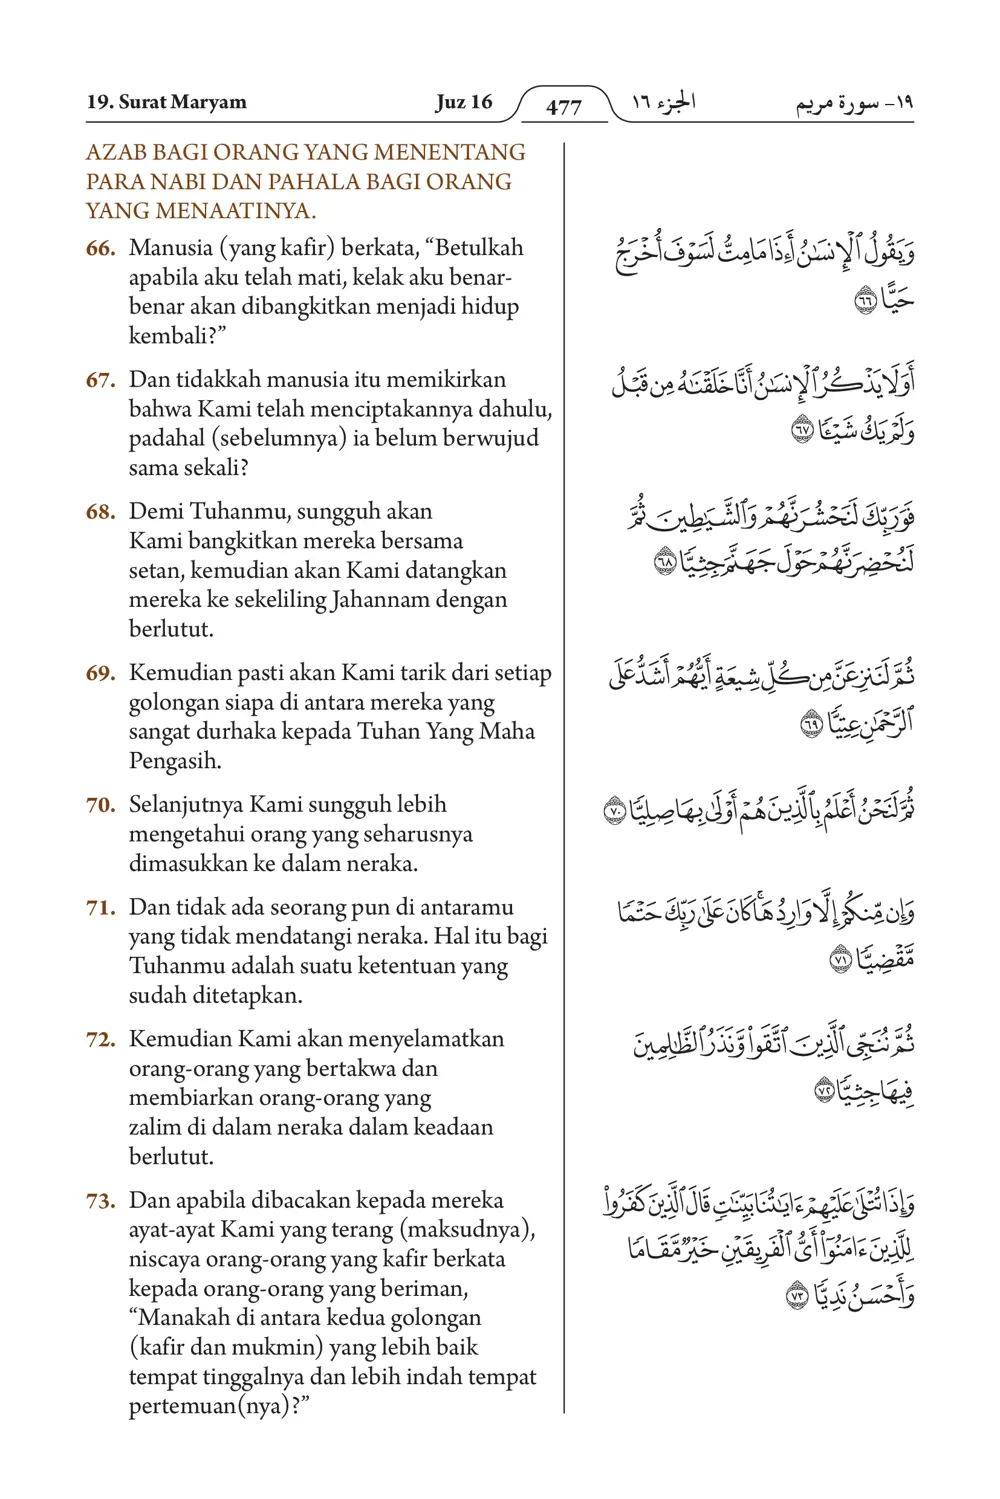 19. Surat Maryam Juz 16 477 الجزء ١٦ ١٩- سورة مريم
AZAB BAGI ORANG YANG MENENTANG
PARA NABI DAN PAHALA BAGI ORANG
YANG MENAATINYA.
66. Manusia (yang kafir) berkata, “Betulkah
apabila aku telah mati, kelak aku benar-
benar akan dibangkitkan menjadi hidup
kembali?”
67. Dan tidakkah manusia itu memikirkan
bahwa Kami telah menciptakannya dahulu,
padahal (sebelumnya) ia belum berwujud
sama sekali?
68. Demi Tuhanmu, sungguh akan
Kami bangkitkan mereka bersama
setan, kemudian akan Kami datangkan
mereka ke sekeliling Jahannam dengan
berlutut.
69. Kemudian pasti akan Kami tarik dari setiap
golongan siapa di antara mereka yang
sangat durhaka kepada Tuhan Yang Maha
Pengasih.
70. Selanjutnya Kami sungguh lebih
mengetahui orang yang seharusnya
dimasukkan ke dalam neraka.
71. Dan tidak ada seorang pun di antaramu
yang tidak mendatangi neraka. Hal itu bagi
Tuhanmu adalah suatu ketentuan yang
sudah ditetapkan.
72. Kemudian Kami akan menyelamatkan
orang-orang yang bertakwa dan
membiarkan orang-orang yang
zalim di dalam neraka dalam keadaan
berlutut.
73. Dan apabila dibacakan kepada mereka
ayat-ayat Kami yang terang (maksudnya),
niscaya orang-orang yang kafir berkata
kepada orang-orang yang beriman,
“Manakah di antara kedua golongan
(kafir dan mukmin) yang lebih baik
tempat tinggalnya dan lebih indah tempat
pertemuan(nya)?”
وَيَقُولُ ٱلْإِنسَٰنُ أَءِذَا مَا مِتُّ لَسَوْفَ أُخْرَجُ
حَيًّا ٦٦
أَوَلَا يَذْكُرُ ٱلْإِنسَٰنُ أَنَّا خَلَقْنَٰهُ مِن قَبْلُ
وَلَمْ يَكُ شَيْـًٔا ٦٧
فَوَرَبِّكَ لَنَحْشُرَنَّهُمْ وَٱلشَّيَٰطِينَ ثُمَّ
لَنُحْضِرَنَّهُمْ حَوْلَ جَهَنَّمَ جِثِيًّا ٦٨
ثُمَّ لَنَنزِعَنَّ مِن كُلِّ شِيعَةٍ أَيُّهُمْ أَشَدُّ عَلَى
ٱلرَّحْمَٰنِ عِتِيًّا ٦٩
ثُمَّ لَنَحْنُ أَعْلَمُ بِٱلَّذِينَ هُمْ أَوْلَىٰ بِهَا صِلِيًّا ٧٠
وَإِن مِّنكُمْ إِلَّا وَارِدُهَا ۚ كَانَ عَلَىٰ رَبِّكَ حَتْمًا
مَّقْضِيًّا ٧١
ثُمَّ نُنَجِّى ٱلَّذِينَ ٱتَّقَوا۟ وَّنَذَرُ ٱلظَّٰلِمِينَ
فِيهَا جِثِيًّا ٧٢
وَإِذَا تُتْلَىٰ عَلَيْهِمْ ءَايَٰتُنَا بَيِّنَٰتٍ قَالَ ٱلَّذِينَ كَفَرُوا۟
لِلَّذِينَ ءَامَنُوٓا۟ أَىُّ ٱلْفَرِيقَيْنِ خَيْرٌ مَّقَامًا
وَأَحْسَنُ نَدِيًّا ٧٣